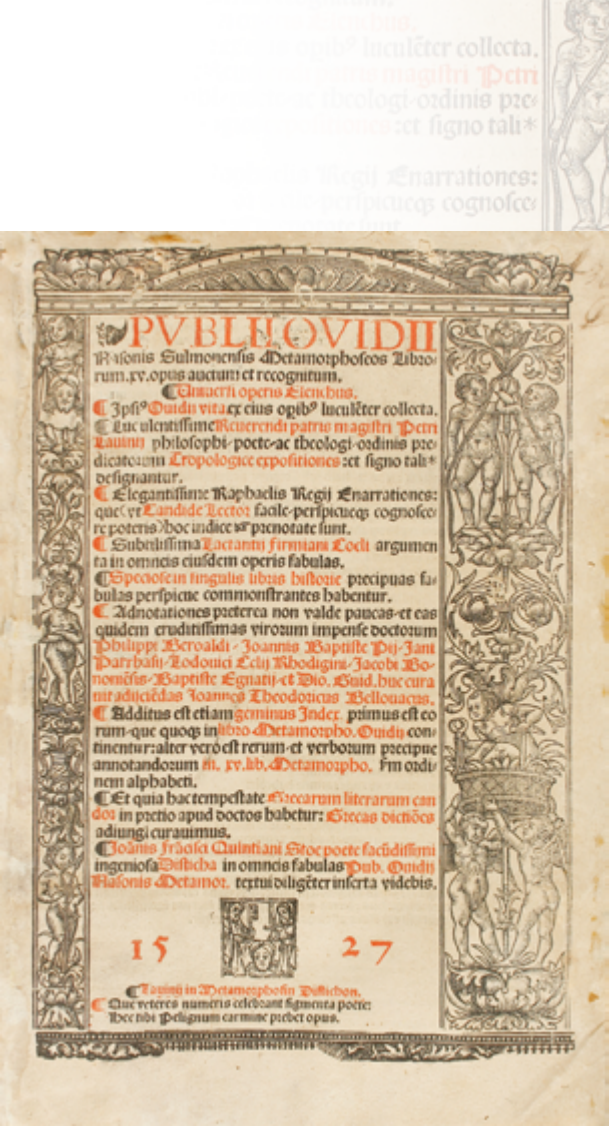 opib⁹ luculēter collecta.
magistri Petri
theologi·ordinis pre-
:et signo tali*
Regij Enarrationes:
cognosce-
PVBLII OVIDII
Nasonis Sulmonensis Metamorphoseos Libro-
rum.xv.opus auctum et recognitum.
operis Elenchus.
¶ Ipsi⁹ Ouidii vita ex eius opib⁹ luculēter collecta.
¶ Luculentissime Reuerendi patris magistri Petri
Lauinii philosophi·poete·ac theologi·ordinis pre-
dicatorum Tropologice expositiones :et signo tali*
designantur.
¶ Elegantissime Raphaelis Regij Enarrationes:
que(vt Candide Lector facile·perspicueqʒ cognosce-
re poteris)hoc indice ☞ prenotate sunt.
¶ Subtilissima Lactantij Firmiani Coeli argumen
ta in omneis eiusdem operis fabulas.
¶ Speciose in singulis libris historie precipuas fa-
bulas perspicue commonstrantes habentur.
¶ Adnotationes preterea non valde paucas·et eas
quidem eruditissimas virorum impense doctorum
Philippi Beroaldi·Joannis Baptiste Pij·Jani
Parrhasij·Lodouici Celij Rhodigini·Jacobi Bo-
nomēsis·Baptiste Egnatij·et Dio. Guid.huc cura
uit adijciēdas Joannes Theodoricus Bellouacus.
¶ Additus est etiam geminus Index. primus est eo
rum·que quoqʒ in libro Metamorpho. Ouidij con-
tinentur:alter vero est rerum·et verborum precipue
annotandorum in. xv.lib. Metamorpho. Fm ordi-
nem alphabeti.
¶ Et quia hac tempestate Grecarum literarum can
dor in pretio apud doctos habetur: Grecas dictiōes
adiungi curauimus.
¶ Joānis frācisci Quintiani Stoe poete facūdissimi
ingeniosa Disticha in omneis fabulas Pub. Ouidij
Nasonis Metamor. textui diligēter inserta videbis.
15 27
¶ Lauinij in Metamorphosin Distichon.
¶ Que veteres numeris celebrant figmenta poete:
Hec tibi Pelignum carmine prebet opus.